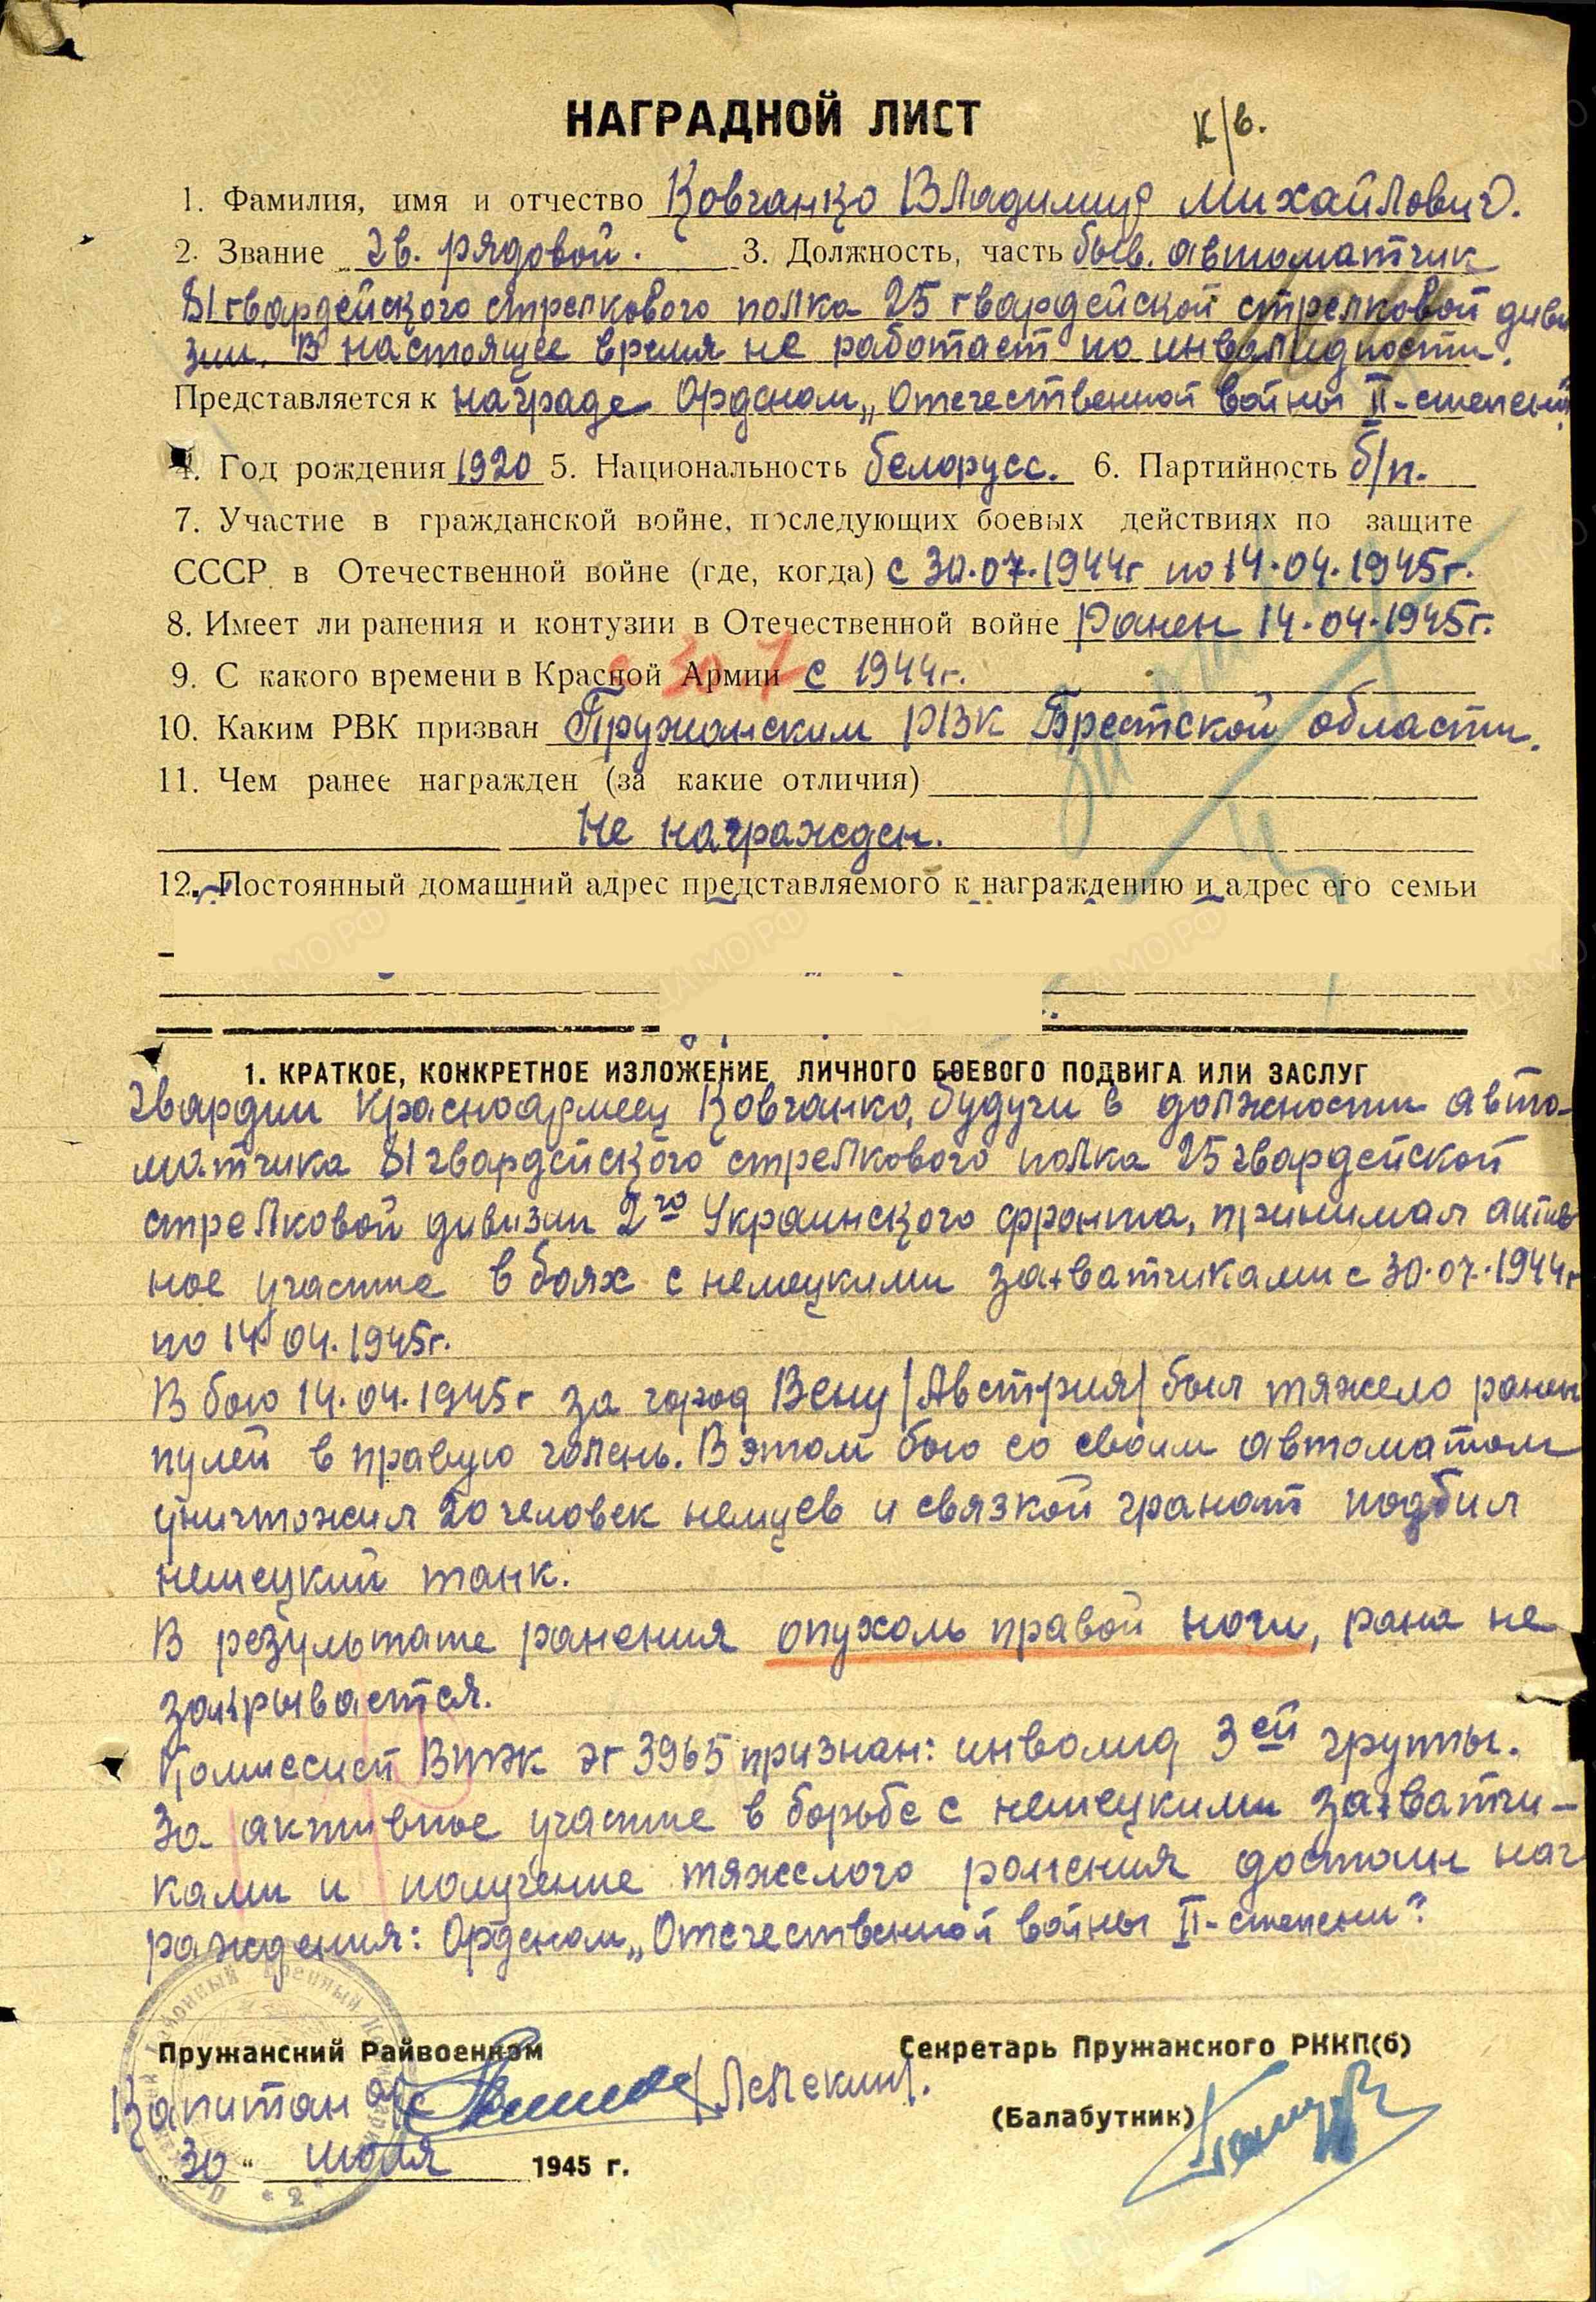 НАГРАДНОЙ ЛИСТ
к/в.
1. Фамилия, имя и отчество Ковчанко Владимир Михайлович.
2. Звание гв. рядовой. 3. Должность, часть быв. автоматчик
81 гвардейского стрелкового полка 25 гвардейской стрелковой диви
зии. В настоящее время не работает по инвалидности.
Представляется к награде Орденом „Отечественной войны II-степени"
4. Год рождения 1920 5. Национальность белорусс. 6. Партийность б/п.
7. Участие в гражданской войне, последующих боевых действиях по защите
СССР в Отечественной войне (где, когда) с 30.07.1944г по 14.04.1945г.
8. Имеет ли ранения и контузии в Отечественной войне Ранен 14.04.1945г.
9. С какого времени в Красной Армии с 1944г.
с 30.7
10. Каким РВК призван Пружанским РВК Брестской области.
11. Чем ранее награжден (за какие отличия)
Не награжден.
12. Постоянный домашний адрес представляемого к награждению и адрес его семьи
1. КРАТКОЕ, КОНКРЕТНОЕ ИЗЛОЖЕНИЕ ЛИЧНОГО БОЕВОГО ПОДВИГА ИЛИ ЗАСЛУГ
Гвардии красноармеец Ковчанко, будучи в должности авто-
матчика 81 гвардейского стрелкового полка 25 гвардейской
стрелковой дивизии 2го Украинского фронта, принимал актив
ное участие в боях с немецкими захватчиками с 30.07.1944г
по 14.04.1945г.
В бою 14.04.1945г за город Вену /Австрия/ был тяжело ранен
пулей в правую голень. В этом бою со своим автоматом
уничтожил 20 человек немцев и связкой гранат подбил
немецкий танк.
В результате ранения опухоль правой ноги, рана не
закрывается.
Комиссией ВТЭК ЭГ 3965 признан: инвалид 3ей группы.
За активное участие в борьбе с немецкими захватчи-
ками и получение тяжелого ранения достоин наг
раждения: Орденом „Отечественной войны II-степени".
Пружанский Райвоенком
Секретарь Пружанского РККП(б)
Капитан а/с /Лепекин/.
(Балабутник)
„30" июля 1945 г.